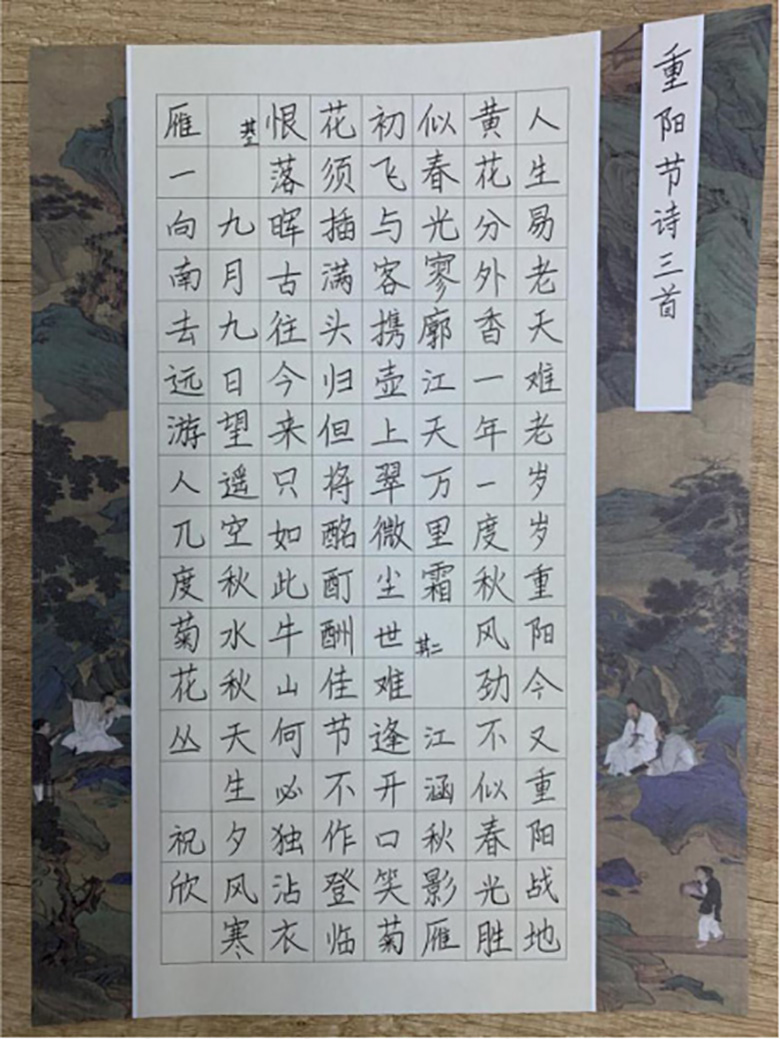 重阳节诗三首
人生易老天难老岁岁重阳今又重阳战地
黄花分外香一年一度秋风劲不似春光胜
似春光寥廓江天万里霜 其二 江涵秋影雁
初飞与客携壶上翠微尘世难逢开口笑菊
花须插满头归但将酩酊酬佳节不作登临
恨落晖古往今来只如此牛山何必独沾衣
其三 九月九日望遥空秋水秋天生夕风寒
雁一向南去远游人几度菊花丛 祝欣